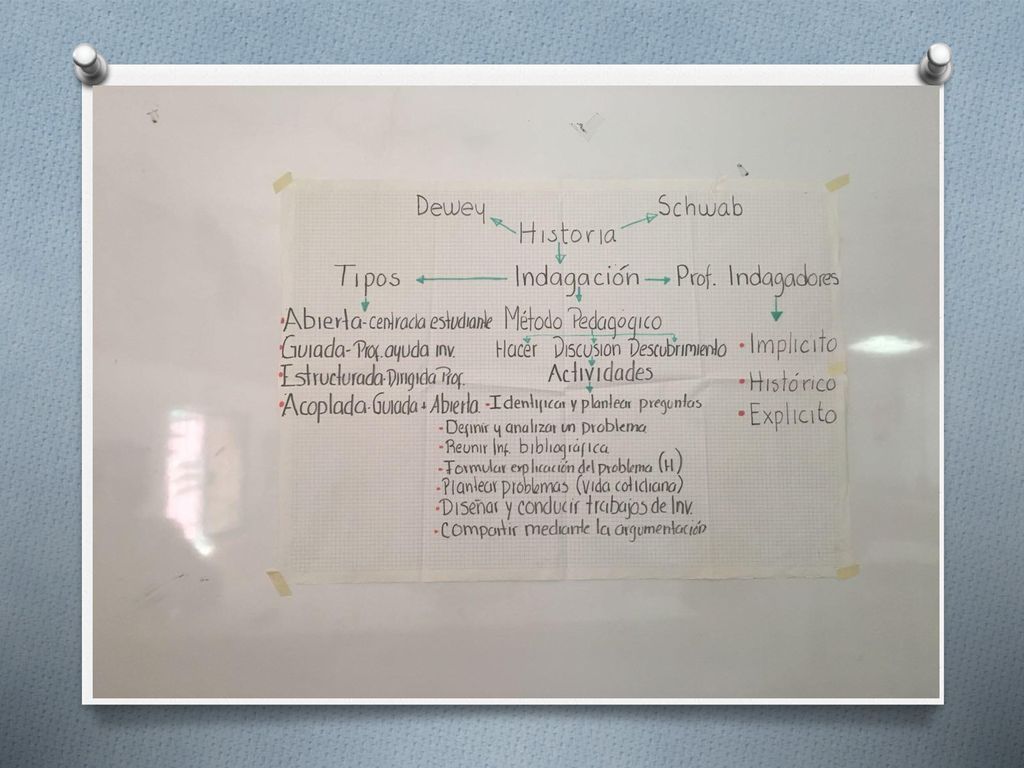 Dewey Schwab
Historia
Tipos Indagación Prof. Indagadores
•Abierta-centrada estudiante
•Guiada-Prof. ayuda inv.
•Estructurada-Dirigida Prof.
•Acoplada-Guiada + Abierta
Método Pedagógico
Hacer Discusión Descubrimiento
Actividades
-Identificar y plantear preguntas
-Definir y analizar un problema
-Reunir Inf. bibliográfica
-Formular explicación del problema (H)
-Plantear problemas (vida cotidiana)
•Diseñar y conducir trabajos de Inv.
•Compartir mediante la argumentación
•Implicito
•Histórico
•Explicito